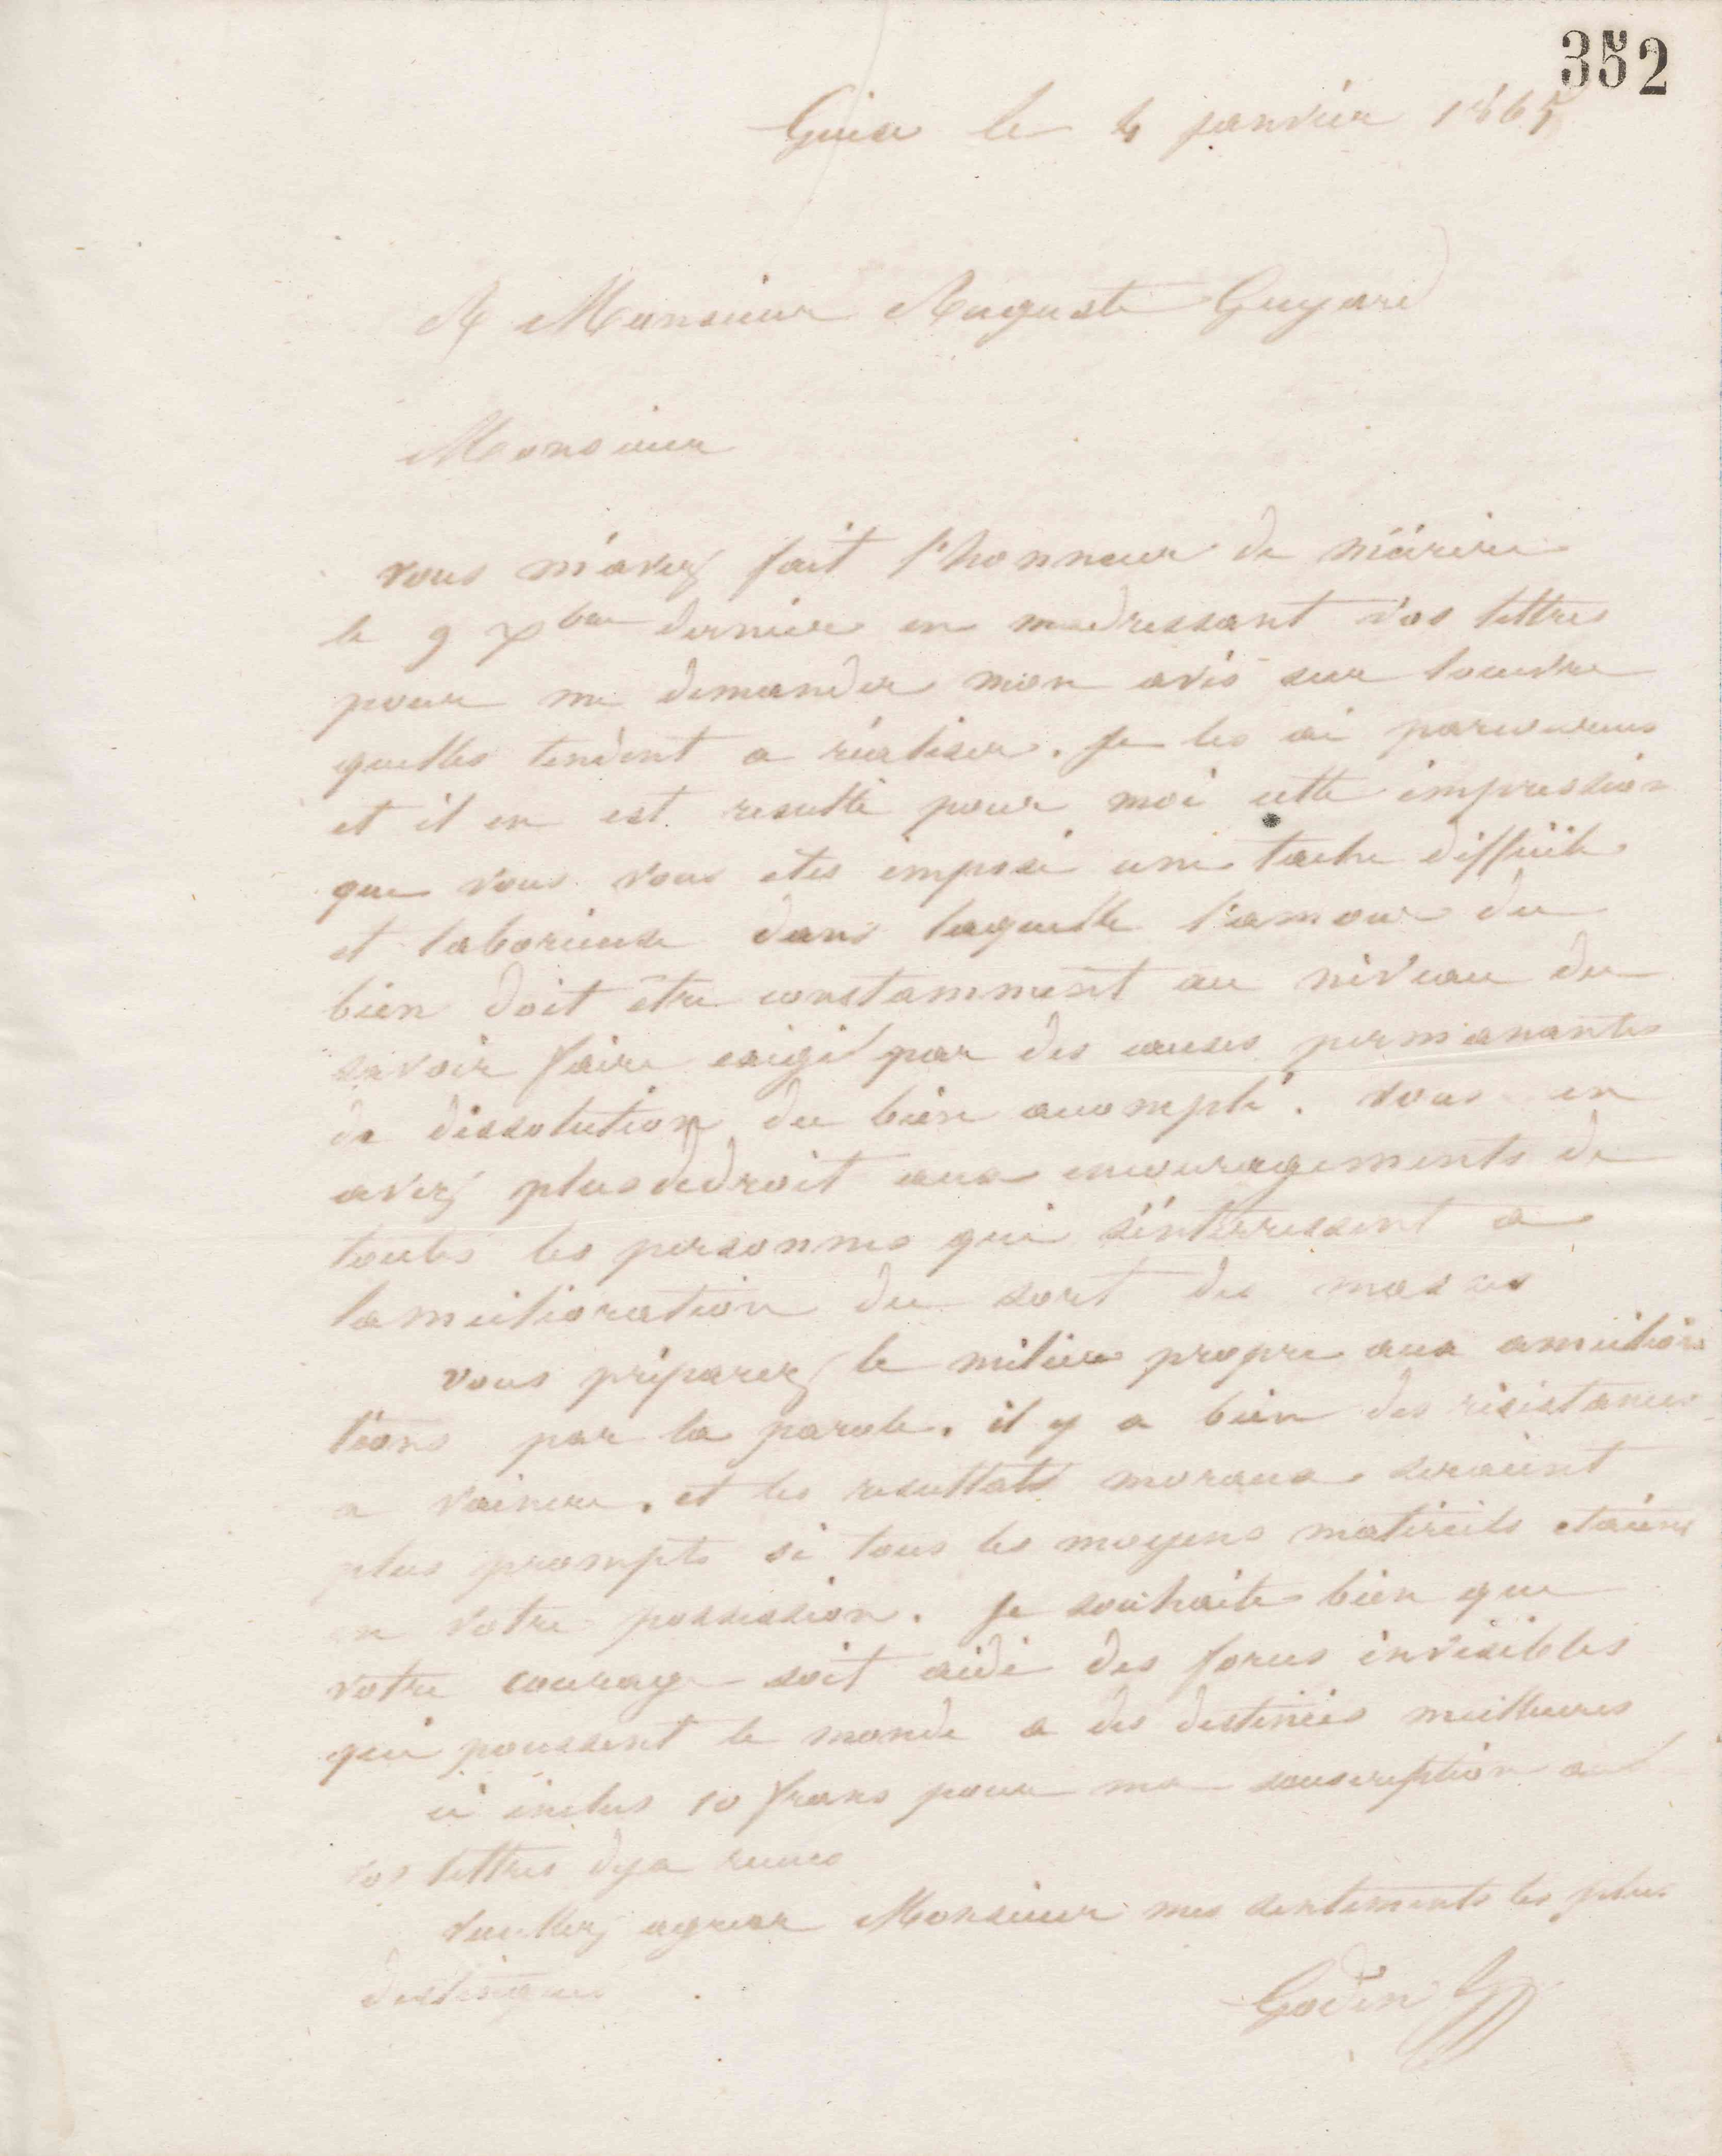 352
Guise le 4 janvier 1865
A Monsieur Auguste Guyard
Monsieur
vous m'avez fait l'honneur de m'écrire
le 9 Xbre dernier en m'adressant vos lettres
pour me demander mon avis sur l'oeuvre
quelles tendent a réaliser. Je les ai parcourues
et il en est resulté pour moi cette impression
que vous vous etes imposé une tache difficile
et laborieuse dans laquelle l'amour du
bien doit être constamment au niveau du
savoir faire exigé par des causes permanantes
de dissolution du bien accompli. vous en
avez plus de droit aux encouragements de
toutes les personnes qui s'intérressent a
l'amélioration du sort des masses
vous préparez le milieu propre aux améliora
tions par la parole. il y a bien des résistances
a vaincre. et les resultats moraux seraient
plus prompts si tous les moyens matériels etaient
en votre possession. Je souhaite bien que
votre courage soit aidé des forces invisibles
qui poussent le monde a des destinées meilleures
ci inclus 10 francs pour ma souscription a
vos lettres deja recues
Veuillez agreer Monsieur mes sentiments les plus
distingués
Godin